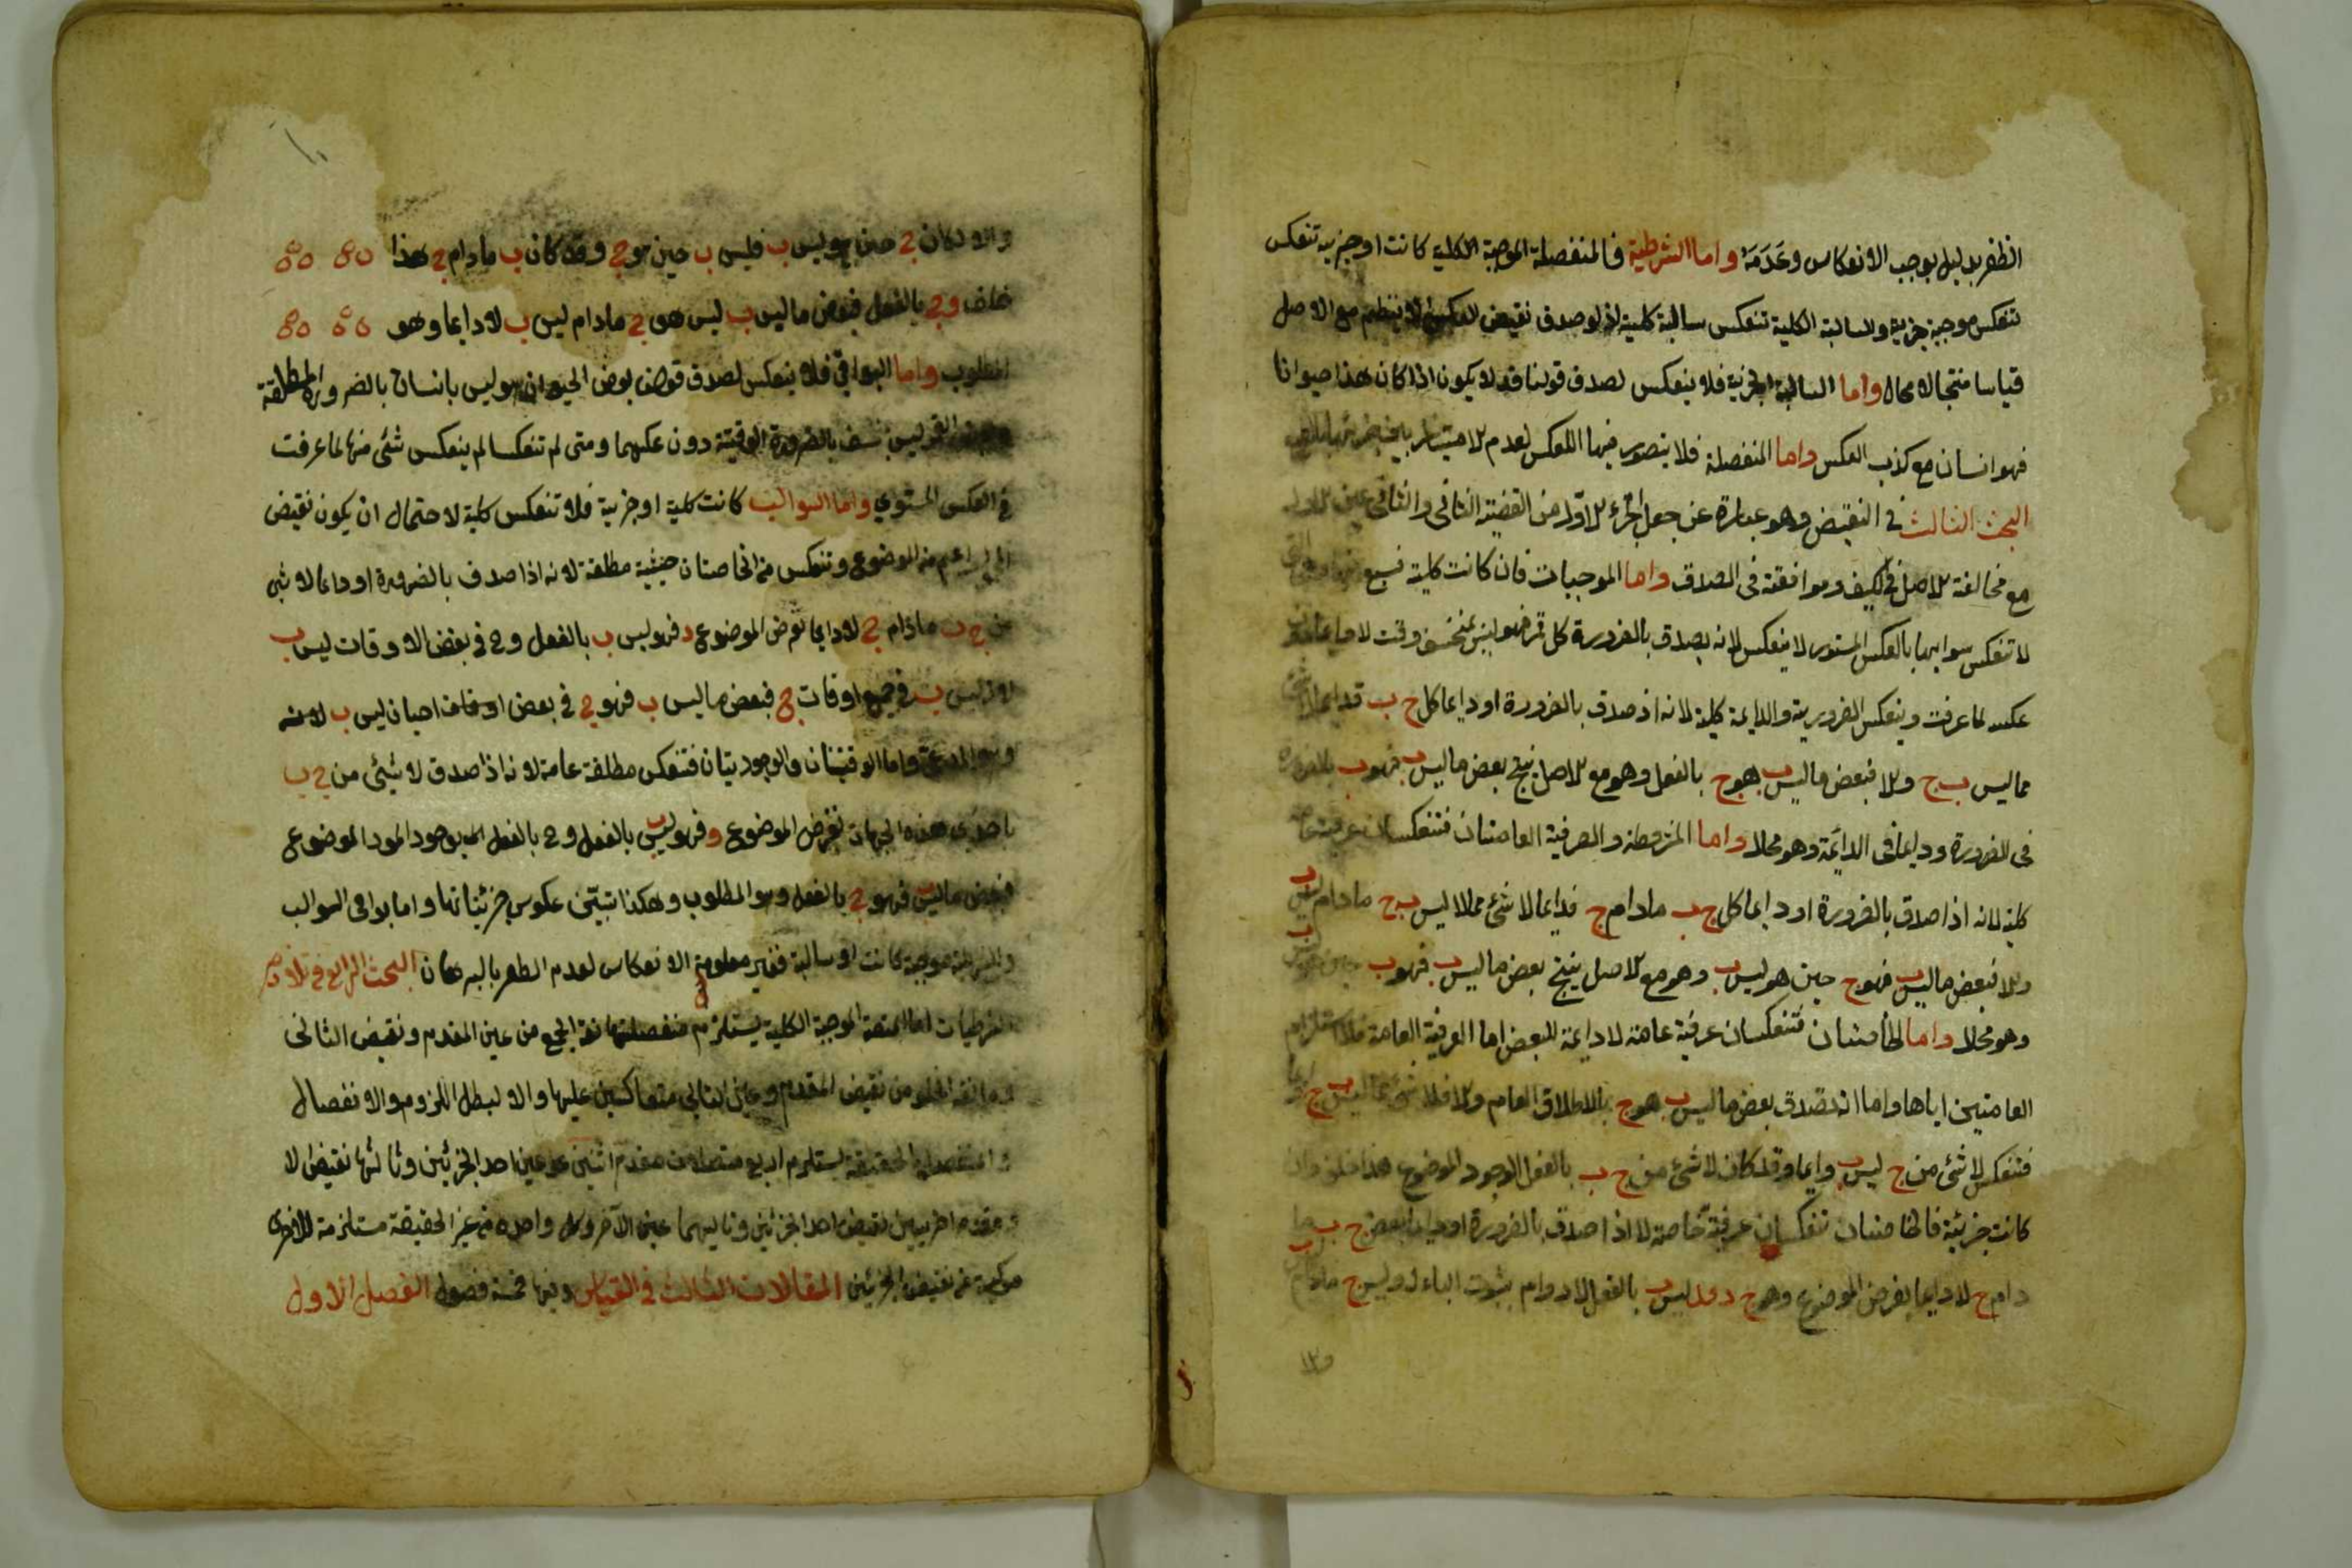 الظفر بدليل يوجب الانعكاس وعَدَمَهُ واما الشرطية فالمنفصلة الموجبة الكلية كانت او جزئية تنعكس
تنعكس موجبة جزئية والسالبة الكلية تنعكس سالبة كلية اذ لو صدق نقيض العكس لانتظم مع الاصل
قياسا منتجا لامحال واما السالبة الجزئية فلا ينعكس لصدق قولنا قد لا يكون اذا كان هذا حيوانا
فهو انسان مع كذب العكس واما المنفصلة فلا يتصور فيها العكس لعدم الامتياز بين جزئيها
البحث الثالث في النقيض وهو عبارة عن جعل الجزء الاوّل من القضية الثاني والثاني عين الاول
مع مخالفة الاصل في الكيف وموافقته في الصدق واما الموجبات فان كانت كلية فسبع
لا تنعكس سوالبها بالعكس المستوى لا ينعكس لانه يصدق بالضرورة كل قمر فهو ليس بمنخسف وقت
عكسه لما عرفت وينعكس الضرورية والدايمة كلية لانه اذ صدق بالضرورة او دايما كل ج ب فدايما لا شئ
مما ليس ب ج والا فبعض ما ليس ب هو ج بالفعل وهو مع الاصل ينتج بعض ما ليس ب فهو ب بالضرورة
في الضرورة ودايما في الدائمة وهو محلا واما المشروطة والعرفية العامتان فتنعكسان عرفية عامة
كلية لانه اذا صدق بالضرورة او دايما كل ج ب مادام ج فدايما لا شئ مملا ليس ب ج مادام ليس ب
والا فبعض ما ليس ب فهو ج حين هو ليس ب وهو مع الاصل ينتج بعض ما ليس ب فهو ب حين هو ليس ب
وهو محلا واما الخاصتان فتنعكسان عرفية عامة لا دايمة للبعض اما العرفية العامة فلاستلزام
العامتين اياها واما انه تصدق بعض ما ليس ب هو ج بالاطلاق العام والا فلا شئ مما ليس ب ج دايما
فتنعكس لا شئ من ج ليس ب دايما وقد كان لا شئ من ج ب بالفعل لوجود الموضوع هذا خلف وان
كانت جزئية فالخاصتان تنعكسان عرفية خاصة لا اذا صدق بالضرورة او دايما بعض ج ب ما
دام ج لا دايما يفرض الموضوع وهو ج د فد ليس ب بالفعل للادوام بثبوت الباء له وليس ج مادام ليس ب
والا
والا لكان ج حين هو ليس ب فليس ب حين هو ج وقد كان ب مادام ج هذا
خلف وج بالفعل فبعض ما ليس ب ليس هو ج مادام ليس ب لا دايما وهو
المطلوب واما البواقي فلا ينعكس لصدق قولنا بعض الحيوان هو ليس بانسان بالضرورة المطلقة
وبعض القمر ليس بمنخسف بالضرورة الوقتية دون عكسهما ومتى لم تنعكسا لم ينعكس شئ منها لما عرفت
في العكس المستوي واما السوالب كانت كلية او جزئية فلا تنعكس كلية لاحتمال ان يكون نقيض
المحمول اعم من الموضوع وتنعكس من الخاصتان حينية مطلقة لانه اذا صدق بالضرورة او دايما لا شئ
من ج ب مادام ج لا دايما نفرض الموضوع د فهو ليس ب بالفعل وج في بعض الاوقات ليس ب
لانه ليس ب في جميع اوقات ج فبعض ما ليس ب فهو ج في بعض او خلف احيان ليس ب لانه
وهو المدعى واما الوقتيتان والوجوديتان فتنعكس مطلقة عامة لانه اذا صدق لا شئ من ج ب
باحدى هذه الجهات نفرض الموضوع د فهو ليس ب بالفعل وج بالفعل لوجود الموضوع
فبعض ما ليس ب فهو ج بالفعل وهو المطلوب وهكذا تبيّن عكوس جزئياتها واما بواقي السوالب
والشرطية موجبة كانت او سالبة فغير معلومة الانعكاس لعدم الظفر بالبرهان البحث الرابع في تلازم
الشرطيات اما المتصلة الموجبة الكلية يستلزم منفصلة مانعة الجمع من عين المقدم ونقيض التالي
ومانعة الخلو من نقيض المقدم وعين التالي متعاكسين عليها والا لبطل اللزوم والانفصال
والمنفصلة الحقيقية يستلزم اربع متصلات مقدم اثنين هو عين احد الجزئين وتاليها نقيض الا
ومقدم اخريين نقيض احد الجزئين وتاليهما عين الآخر وكل واحدة من غير الحقيقة مستلزمة للاخرى
مركبة من نقيض الجزئين المقالات الثالث في القياس وفيها خمسة فصول الفصل الاول